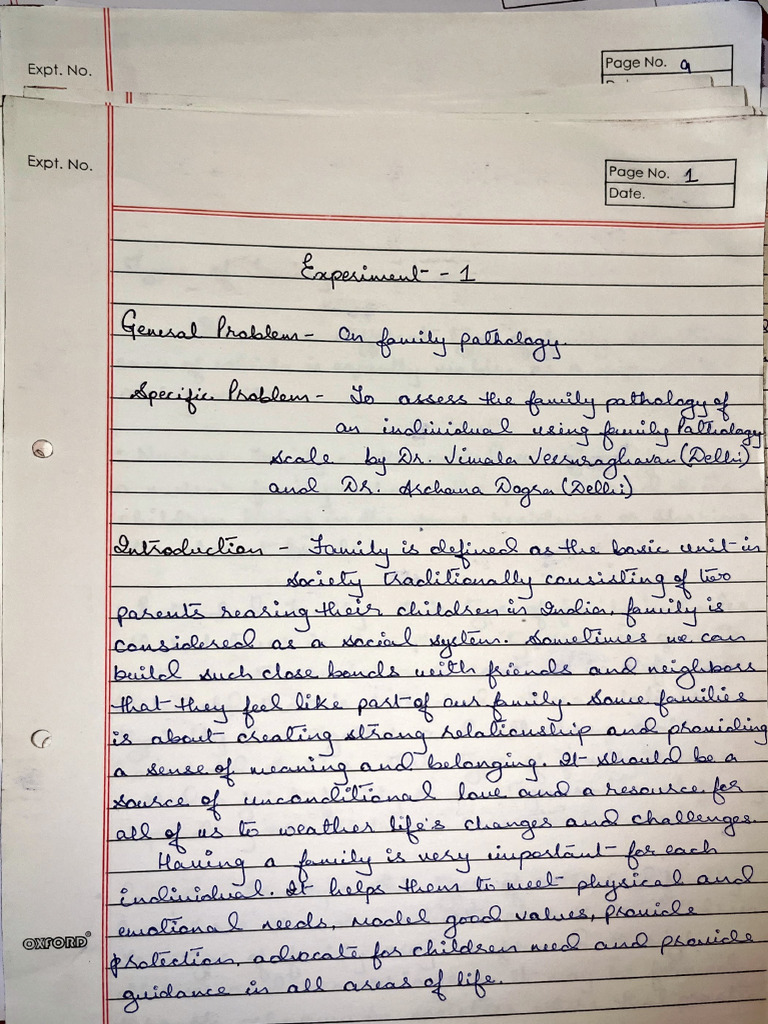 Expt. No.
Page No. 9
Expt. No.
Page No. 1
Date.
Experiment - 1
General Problem - On family pathology.
Specific Problem - To assess the family pathology of
an individual using family Pathology
scale by Dr. Vimala Veeraraghavan (Delhi)
and Dr. Archana Dogra (Delhi)
Introduction - Family is defined as the basic unit in
society traditionally consisting of two
parents rearing their children in India, family is
considered as a social system. Sometimes we can
build such close bonds with friends and neighbors
that they feel like part of our family. Some families
is about creating strong relationship and providing
a sense of meaning and belonging. It should be a
source of unconditional love and a resource for
all of us to weather life's changes and challenges.
Having a family is very important for each
individual. It helps them to meet physical and
emotional needs, model good values, provide
protection, advocate for children need and provide
guidance in all areas of life.
OXFORD